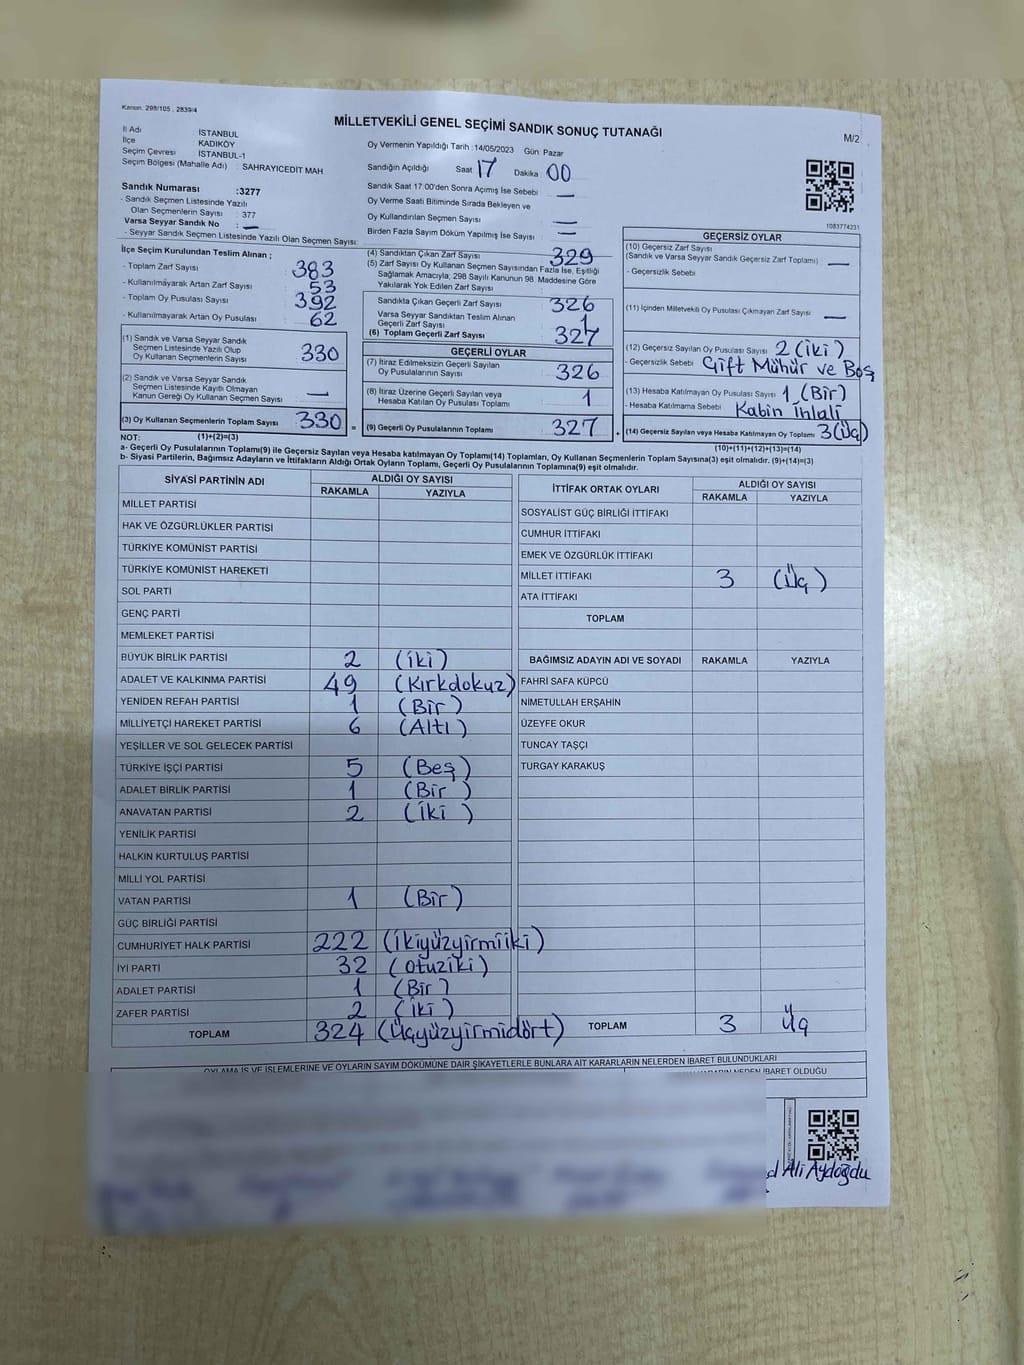 Kanun: 298/105 , 2839/4
MİLLETVEKİLİ GENEL SEÇİMİ SANDIK SONUÇ TUTANAĞI
M/2
İl Adı : İSTANBUL
İlçe : KADIKÖY
Seçim Çevresi : İSTANBUL-1
Seçim Bölgesi (Mahalle Adı) : SAHRAYICEDİT MAH
Sandık Numarası :3277
- Sandık Seçmen Listesinde Yazılı
Olan Seçmenlerin Sayısı : 377
Varsa Seyyar Sandık No : —
- Seyyar Sandık Seçmen Listesinde Yazılı Olan Seçmen Sayısı:
Oy Vermenin Yapıldığı Tarih :14/05/2023 Gün: Pazar
Sandığın Açıldığı Saat : 17 Dakika : 00
Sandık Saat 17:00'den Sonra Açımış İse Sebebi : —
Oy Verme Saati Bitiminde Sırada Bekleyen ve
Oy Kullandırılan Seçmen Sayısı : —
Birden Fazla Sayım Döküm Yapılmış İse Sayısı : —
1083774231
İlçe Seçim Kurulundan Teslim Alınan ;
- Toplam Zarf Sayısı : 383
- Kullanılmayarak Artan Zarf Sayısı : 53
- Toplam Oy Pusulası Sayısı : 392
- Kullanılmayarak Artan Oy Pusulası : 62
(1) Sandık ve Varsa Seyyar Sandık
Seçmen Listesinde Yazılı Olup
Oy Kullanan Seçmenlerin Sayısı : 330
(2) Sandık ve Varsa Seyyar Sandık
Seçmen Listesinde Kayıtlı Olmayan
Kanun Gereği Oy Kullanan Seçmen Sayısı : —
(3) Oy Kullanan Seçmenlerin Toplam Sayısı : 330 =
(4) Sandıktan Çıkan Zarf Sayısı : 329
(5) Zarf Sayısı Oy Kullanan Seçmen Sayısından Fazla İse, Eşitliği
Sağlamak Amacıyla; 298 Sayılı Kanunun 98. Maddesine Göre
Yakılarak Yok Edilen Zarf Sayısı :
Sandıkta Çıkan Geçerli Zarf Sayısı : 326
Varsa Seyyar Sandıktan Teslim Alınan
Geçerli Zarf Sayısı : 1
(6) Toplam Geçerli Zarf Sayısı : 327
GEÇERLİ OYLAR
(7) İtiraz Edilmeksizin Geçerli Sayılan
Oy Pusulalarının Sayısı : 326
(8) İtiraz Üzerine Geçerli Sayılan veya
Hesaba Katılan Oy Pusulası Toplamı : 1
(9) Geçerli Oy Pusulalarının Toplamı : 327 +
GEÇERSİZ OYLAR
(10) Geçersiz Zarf Sayısı
(Sandık ve Varsa Seyyar Sandık Geçersiz Zarf Toplamı) : —
- Geçersizlik Sebebi :
(11) İçinden Milletvekili Oy Pusulası Çıkmayan Zarf Sayısı : —
(12) Geçersiz Sayılan Oy Pusulası Sayısı : 2 (iki)
- Geçersizlik Sebebi : Çift Mühür ve Boş
(13) Hesaba Katılmayan Oy Pusulası Sayısı : 1 (Bir)
- Hesaba Katılmama Sebebi : Kabin ihlali
(14) Geçersiz Sayılan veya Hesaba Katılmayan Oy Toplamı : 3 (Üç)
NOT: (1)+(2)=(3) (10)+(11)+(12)+(13)=(14)
a- Geçerli Oy Pusulalarının Toplamı(9) ile Geçersiz Sayılan veya Hesaba katılmayan Oy Toplamı(14) Toplamları, Oy Kullanan Seçmenlerin Toplam Sayısına(3) eşit olmalıdır. (9)+(14)=(3)
b- Siyasi Partilerin, Bağımsız Adayların ve İttifakların Aldığı Ortak Oyların Toplamı, Geçerli Oy Pusulalarının Toplamına(9) eşit olmalıdır.
SİYASİ PARTİNİN ADI ALDIĞI OY SAYISI
RAKAMLA YAZIYLA
MİLLET PARTİSİ
HAK VE ÖZGÜRLÜKLER PARTİSİ
TÜRKİYE KOMÜNİST PARTİSİ
TÜRKİYE KOMÜNİST HAREKETİ
SOL PARTİ
GENÇ PARTİ
MEMLEKET PARTİSİ
BÜYÜK BİRLİK PARTİSİ 2 (iki)
ADALET VE KALKINMA PARTİSİ 49 (Kırkdokuz)
YENİDEN REFAH PARTİSİ 1 (Bir)
MİLLİYETÇİ HAREKET PARTİSİ 6 (Altı)
YEŞİLLER VE SOL GELECEK PARTİSİ
TÜRKİYE İŞÇİ PARTİSİ 5 (Beş)
ADALET BİRLİK PARTİSİ 1 (Bir)
ANAVATAN PARTİSİ 2 (iki)
YENİLİK PARTİSİ
HALKIN KURTULUŞ PARTİSİ
MİLLİ YOL PARTİSİ
VATAN PARTİSİ 1 (Bir)
GÜÇ BİRLİĞİ PARTİSİ
CUMHURİYET HALK PARTİSİ 222 (ikiyüzyirmiiki)
İYİ PARTİ 32 (otuziki)
ADALET PARTİSİ 1 (Bir)
ZAFER PARTİSİ 2 (iki)
TOPLAM 324 (Üçyüzyirmidört)
İTTİFAK ORTAK OYLARI ALDIĞI OY SAYISI
RAKAMLA YAZIYLA
SOSYALİST GÜÇ BİRLİĞİ İTTİFAKI
CUMHUR İTTİFAKI
EMEK VE ÖZGÜRLÜK İTTİFAKI
MİLLET İTTİFAKI 3 (Üç)
ATA İTTİFAKI
TOPLAM
BAĞIMSIZ ADAYIN ADI VE SOYADI RAKAMLA YAZIYLA
FAHRİ SAFA KÜPCÜ
NİMETULLAH ERŞAHİN
ÜZEYFE OKUR
TUNCAY TAŞÇI
TURGAY KARAKUŞ
TOPLAM 3 Üç
OYLAMA İŞ VE İŞLEMLERİNE VE OYLARIN SAYIM DÖKÜMÜNE DAİR ŞİKAYETLERLE BUNLARA AİT KARARLARIN NELERDEN İBARET BULUNDUKLARI
NEDEN İBARET OLDUĞU
Ali Aydoğdu